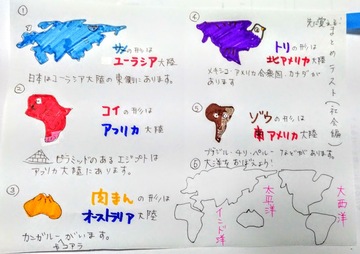 ①
サメの形は
ユーラシア大陸
日本はユーラシア大陸の東側にあります。
②
コイの形は
アフリカ大陸
ピラミッドのあるエジプトは
アフリカ大陸にあります。
③
肉まんの形は
オーストラリア大陸
カンガルーがいます。
コアラ
④
トリの形は
北アメリカ大陸
メキシコ・アメリカ合衆国・カナダが
あります
⑤
ゾウの形は
南アメリカ大陸
ブラジル・チリ・ペルーなどがあります。
⑥
大洋をおぼえよう!
インド洋
太平洋
大西洋
まとめテスト(社会編)